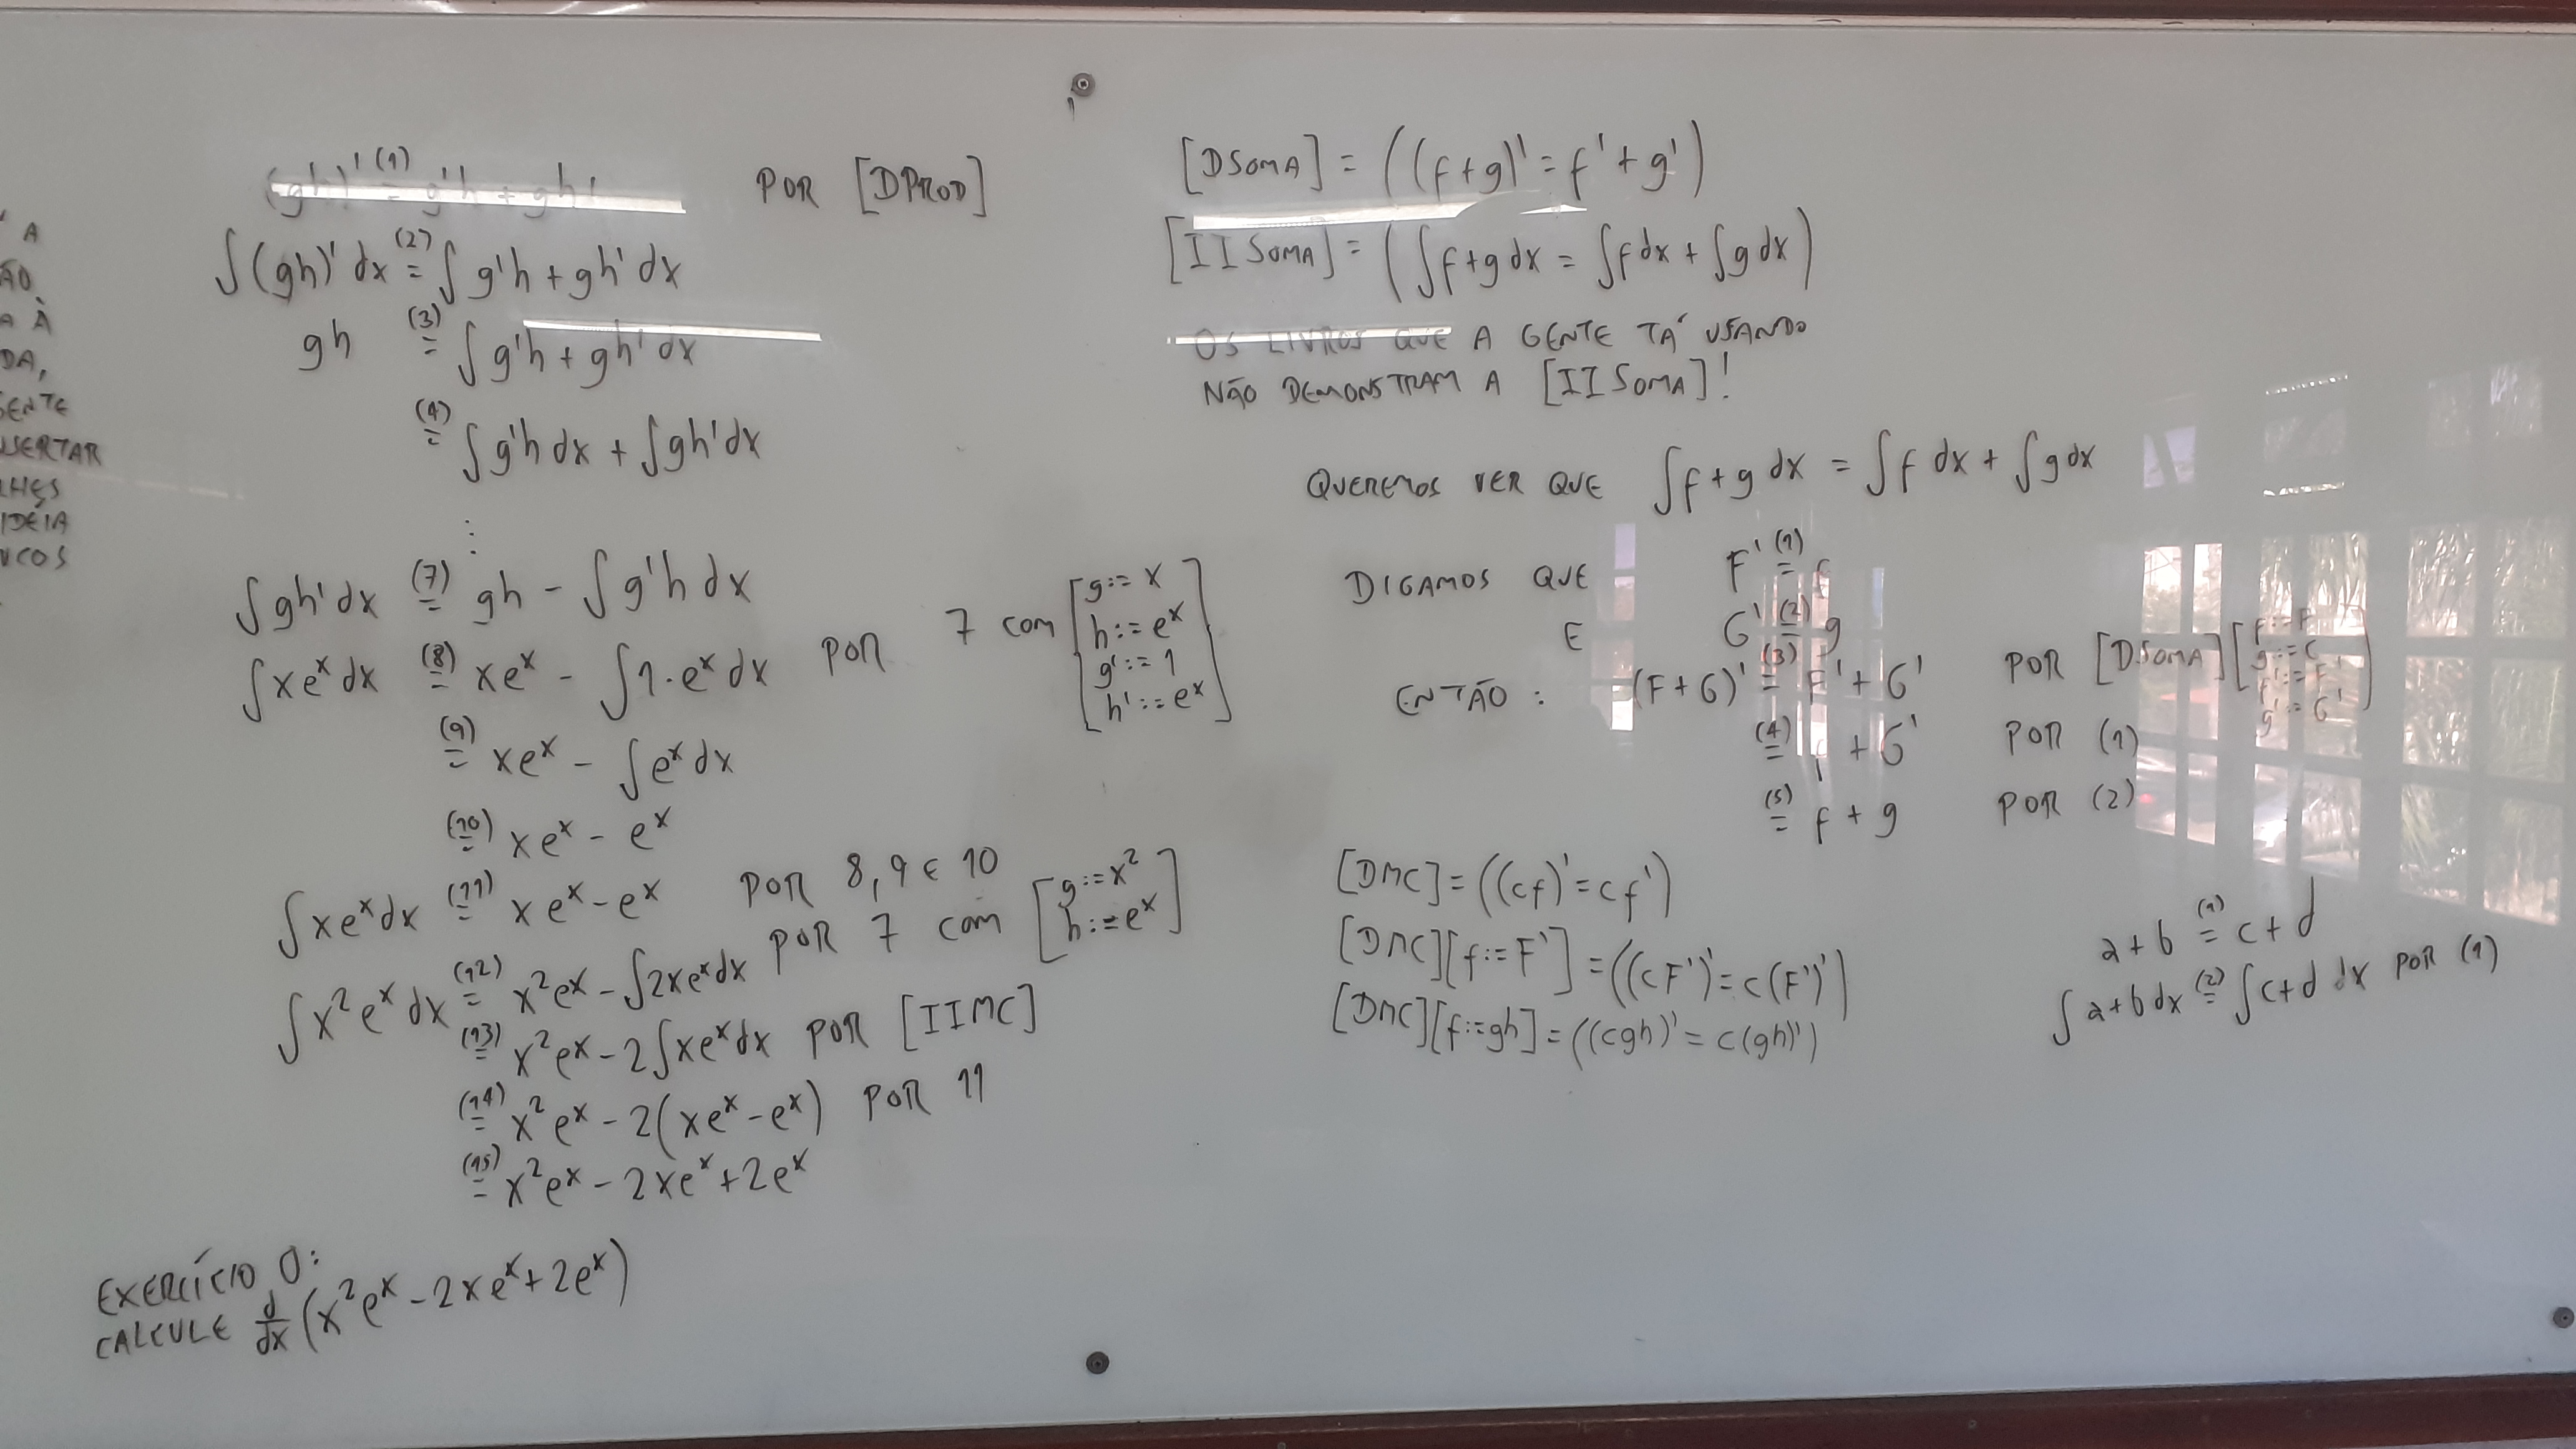 A
ÃO
A À
DA,
SENTE
LHES
IDÉIA
(gh)' (1)= g'h + gh' POR [DPROD]
∫(gh)' dx (2)= ∫g'h + gh' dx
gh (3)= ∫g'h + gh' dx
(4)= ∫g'h dx + ∫gh' dx
⋮
∫gh' dx (7)= gh - ∫g'h dx
∫xe^x dx (8)= xe^x - ∫1·e^x dx POR 7 COM [g:=x
h:=e^x
g':=1
h':=e^x]
(9)= xe^x - ∫e^x dx
(10)= xe^x - e^x
∫xe^x dx (11)= xe^x - e^x POR 8, 9 E 10
∫x²e^x dx (12)= x²e^x - ∫2xe^x dx POR 7 COM [g:=x²
h:=e^x]
(13)= x²e^x - 2∫xe^x dx POR [IIMC]
(14)= x²e^x - 2(xe^x - e^x) POR 11
(15)= x²e^x - 2xe^x + 2e^x
EXERCÍCIO 0:
CALCULE d/dx (x²e^x - 2xe^x + 2e^x)
[DSOMA] = ((f+g)' = f' + g')
[IISOMA] = (∫f+g dx = ∫f dx + ∫g dx)
OS LIVROS QUE A GENTE TÁ USANDO
NÃO DEMONSTRAM A [IISOMA]!
QUEREMOS VER QUE ∫f+g dx = ∫f dx + ∫g dx
DIGAMOS QUE F' (1)= f
E G' (2)= g
ENTÃO: (F+G)' (3)= F' + G' POR [DSOMA] [f:=F
g:=G
f':=F'
g':=G']
(4)= f + G' POR (1)
(5)= f + g POR (2)
[DMC] = ((cf)' = cf')
[DMC][f:=F'] = ((cF')' = c(F')')
[DMC][f:=gh] = ((cgh)' = c(gh)')
a+b (1)= c+d
∫a+b dx (2)= ∫c+d dx POR (1)